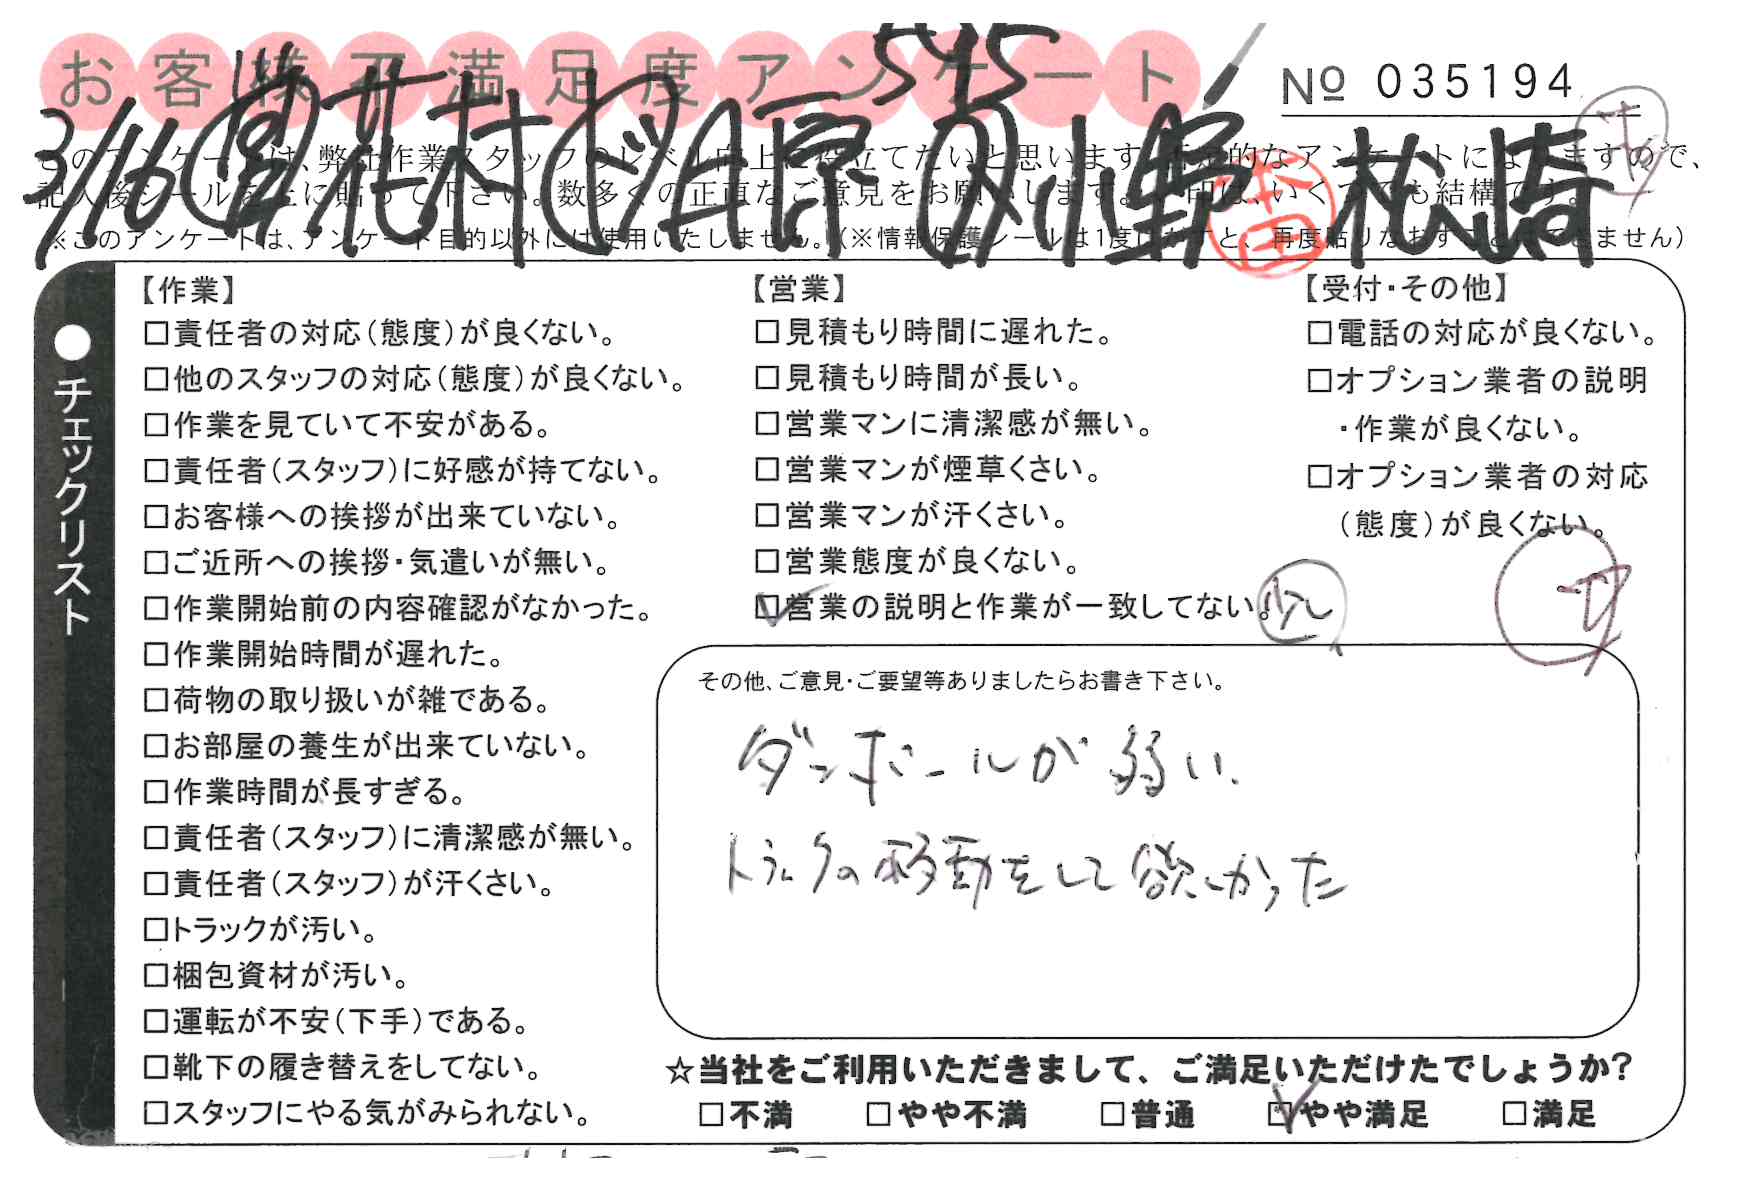 お客様不満足度アンケート
545
No 035194
3/16 花村 小野 松崎
このアンケートは、弊社作業スタッフのレベル向上に役立てたいと思います。否定的なアンケートになりますので、
記入後シールを上に貼って下さい。数多くの正直なご意見をお願いします。レ印は、いくつでも結構です。
※このアンケートは、アンケート目的以外には使用いたしません。(※情報保護シールは1度はがすと、再度貼りなおすことはできません)
●チェックリスト
【作業】
□責任者の対応(態度)が良くない。
□他のスタッフの対応(態度)が良くない。
□作業を見ていて不安がある。
□責任者(スタッフ)に好感が持てない。
□お客様への挨拶が出来ていない。
□ご近所への挨拶・気遣いが無い。
□作業開始前の内容確認がなかった。
□作業開始時間が遅れた。
□荷物の取り扱いが雑である。
□お部屋の養生が出来ていない。
□作業時間が長すぎる。
□責任者(スタッフ)に清潔感が無い。
□責任者(スタッフ)が汗くさい。
□トラックが汚い。
□梱包資材が汚い。
□運転が不安(下手)である。
□靴下の履き替えをしてない。
□スタッフにやる気がみられない。
【営業】
□見積もり時間に遅れた。
□見積もり時間が長い。
□営業マンに清潔感が無い。
□営業マンが煙草くさい。
□営業マンが汗くさい。
□営業態度が良くない。
☑営業の説明と作業が一致してない。少し
【受付・その他】
□電話の対応が良くない。
□オプション業者の説明
・作業が良くない。
□オプション業者の対応
(態度)が良くない。
その他、ご意見・ご要望等ありましたらお書き下さい。
ダンボールが弱い。
トラックの移動をして欲しかった
☆当社をご利用いただきまして、ご満足いただけたでしょうか?
□不満 □やや不満 □普通 ☑やや満足 □満足